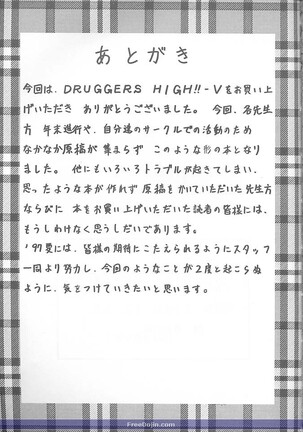 あとがき
今回は、DRUGGERS HIGH!!-Vをお買い上
げいただき ありがとうございました。 今回、各先生
方 年末進行や、自分達のサークルでの活動のため
なかなか原稿が集まらず このような形の本となり
ました。 他にもいろいろトラブルが起きてしまい、
思ったような本が作れず 原稿をかいていただいた先生方
ならびに 本をお買い上げいただいた読者の皆様には、
もうしわけなく思うしだいであります。
'97夏には、皆様の期待にこたえられるようにスタッフ
一同より努力し、今回のようなことが2度と起こらぬ
ように、気をつけていきたいと思います。
FreeDojin.com